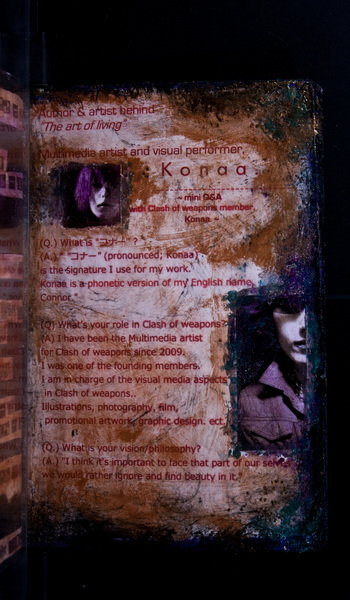 Author & artist behind
"The art of living"
Multimedia artist and visual performer,
Konaa.
~ mini Q&A
with Clash of weapons member,
Konaa ~
(Q.) What is "コナー" ?
(A.) " "コナー" (pronounced; Konaa)
is the signature I use for my work.
Konaa is a phonetic version of my English name,
Connor."
(Q) What's your role in Clash of weapons?
(A) I have been the Multimedia artist
for Clash of weapons since 2009.
I was one of the founding members.
I am in charge of the visual media aspects
in Clash of weapons..
Illustrations, photography, film,
promotional artwork, graphic design. ect.
(Q.) What is your vision/philosophy?
(A.) "I think it's important to face that part of our selves
we would rather ignore and find beauty in it."